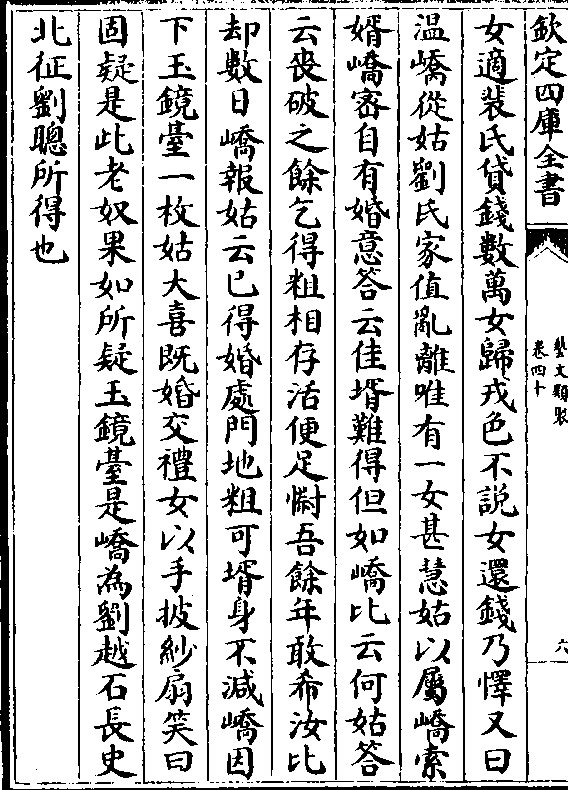 欽定四庫全書
藝文類聚
卷四十
六
女適裴氏貸錢數萬女歸戎色不說女還錢乃懌又曰
温嶠從姑劉氏家值亂離唯有一女甚慧姑以屬嶠索
婿嶠密自有婚意答云佳壻難得但如嶠比云何姑答
云喪破之餘乞得粗相存活便足慰吾餘年敢希汝比
却數日嶠報姑云已得婚處門地粗可壻身不減嶠因
下玉鏡臺一枚姑大喜既婚交禮女以手披紗扇笑曰
固疑是此老奴果如所疑玉鏡臺是嶠為劉越石長史
北征劉聰所得也